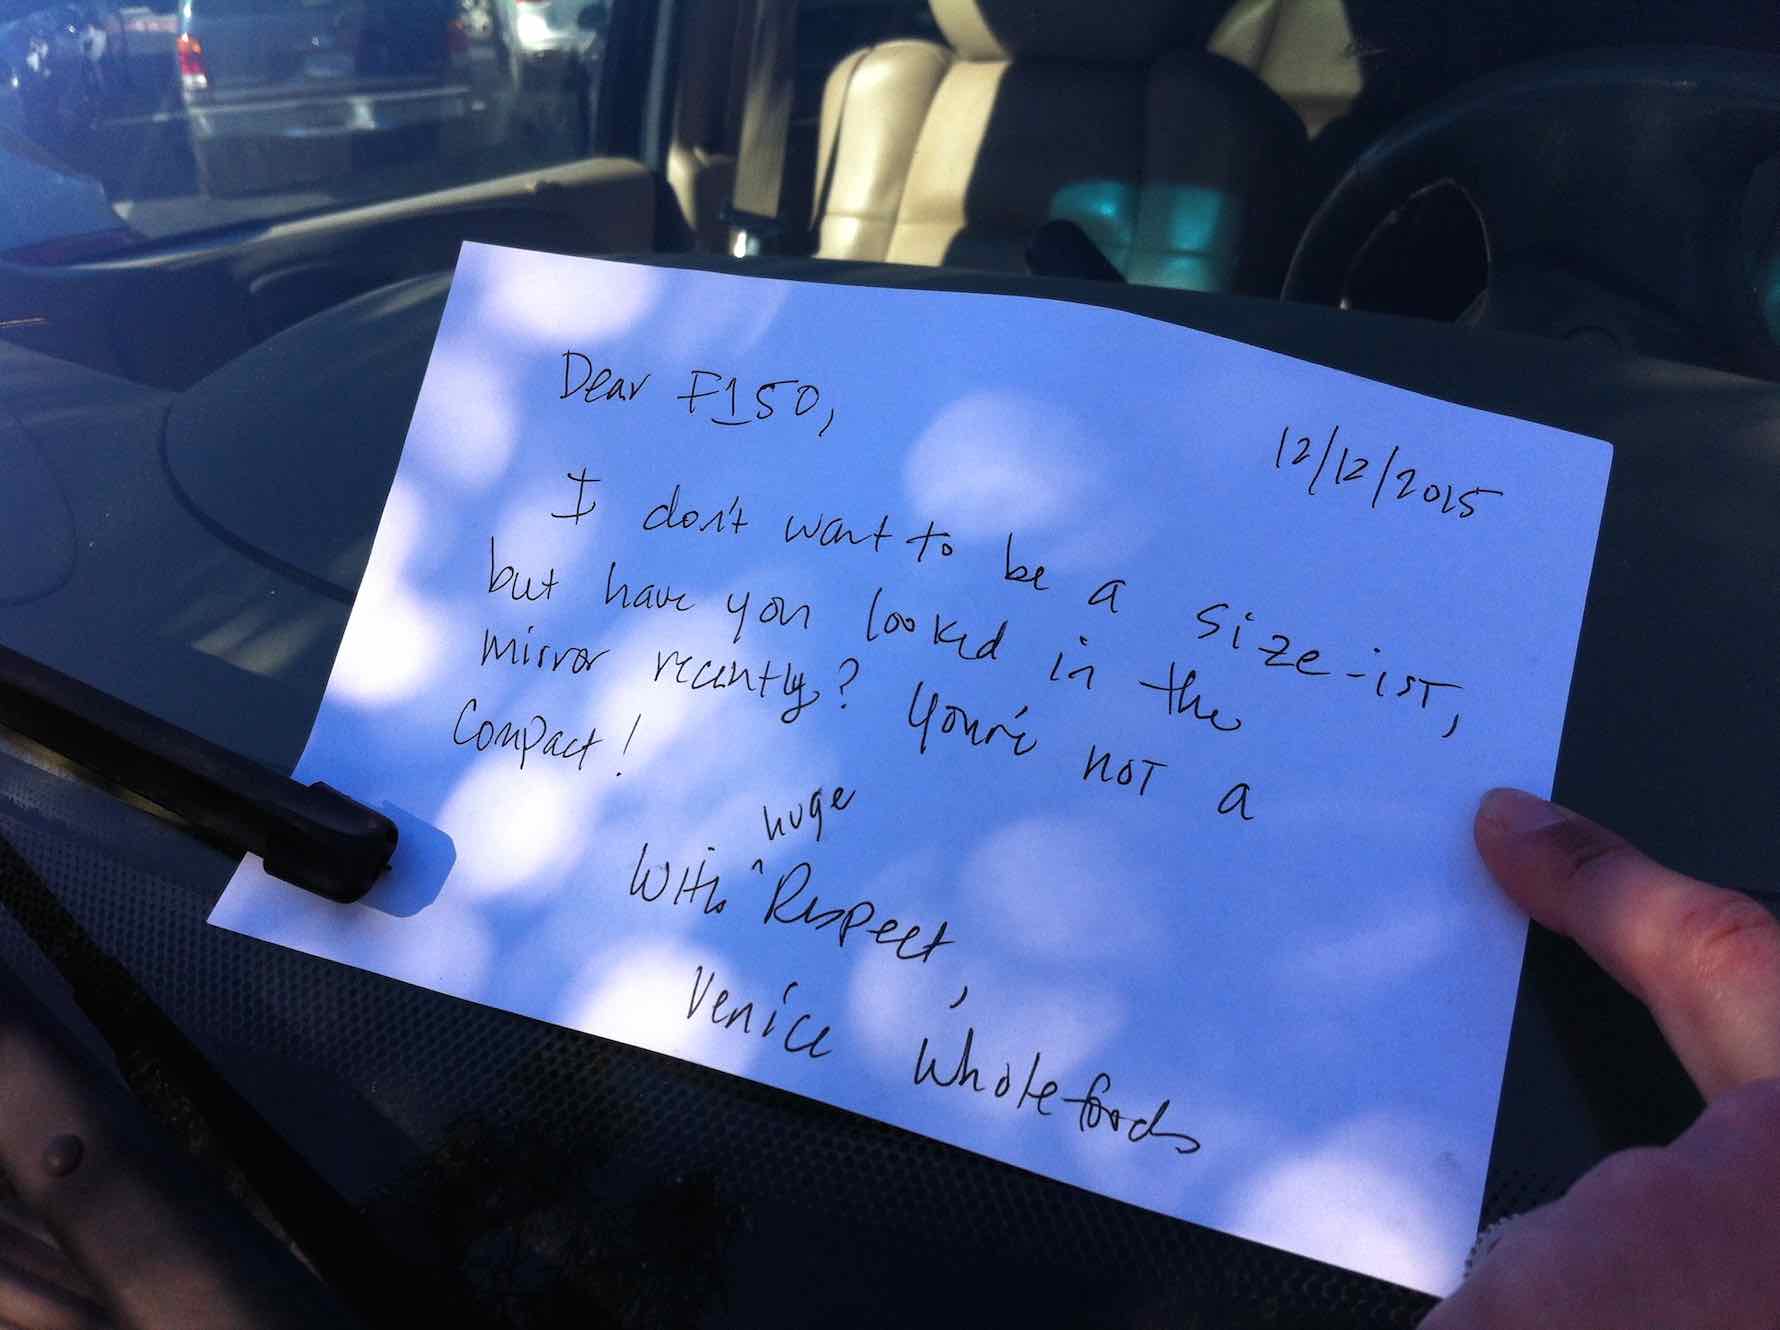 Dear F150,
12/12/2015
I don't want to be a size-ist,
but have you looked in the
mirror recently? You're not a
compact!
With ^huge Respect,
Venice Wholefoods